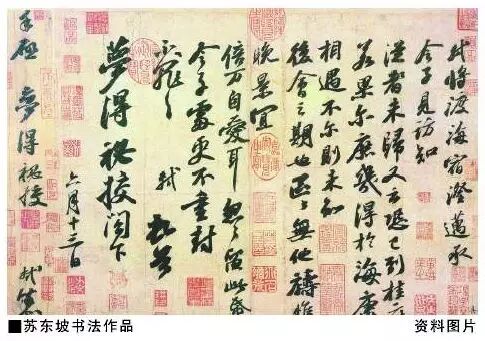 軾將渡海宿澄邁承
令子見訪知
從者未歸又云恐已到桂府
若果尔庶幾得於海康
相遇不尔則未知
後會之期也區區無他禱惟
晚景宜
倍万自愛耳忽忽留此帋
令子處更不重封
不罪不罪 軾頓首
夢得秘校閣下
六月十三日
手啓 夢得秘校 軾封
■苏东坡书法作品
资料图片